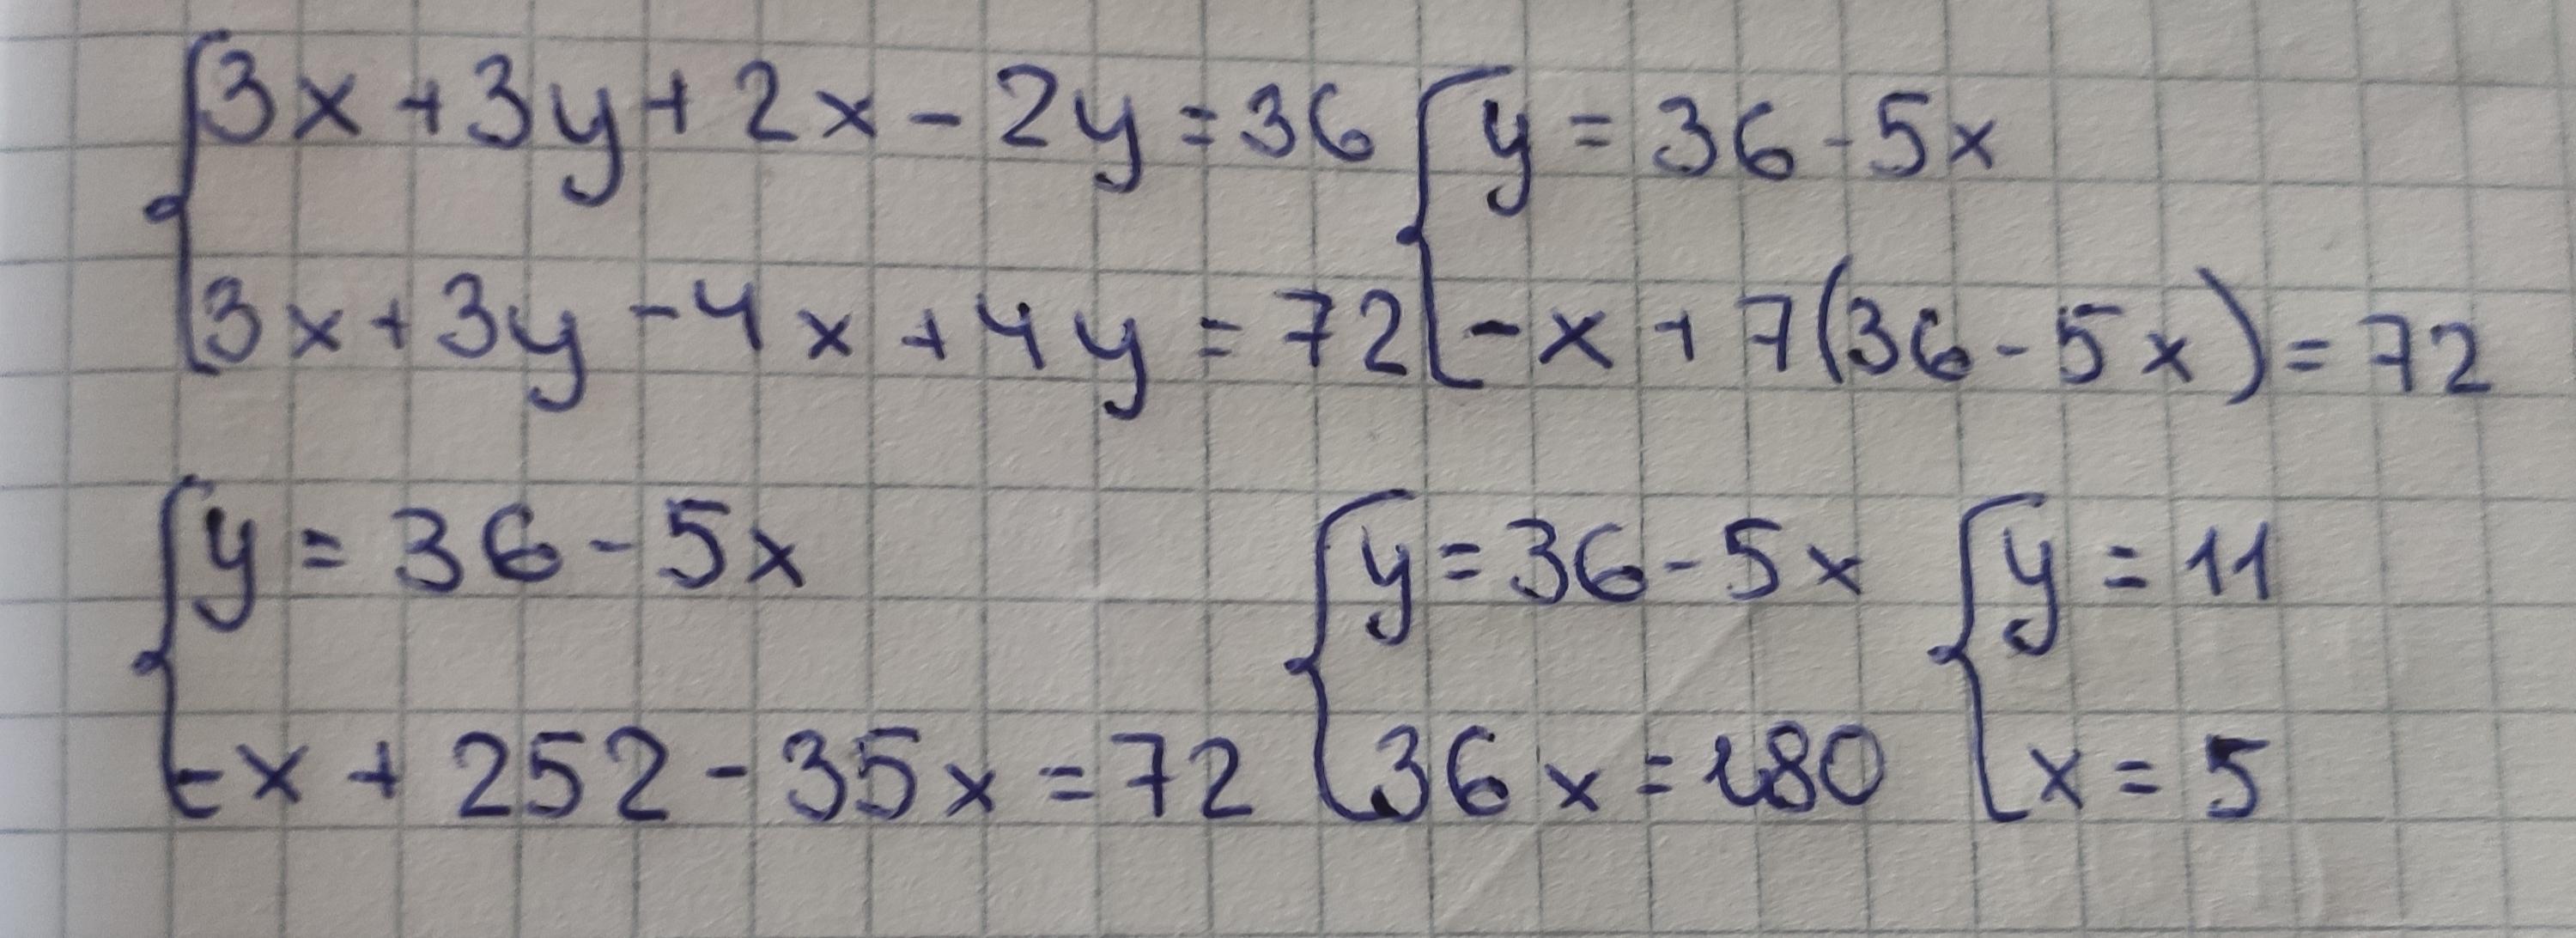 3x + 3y + 2x - 2y = 36
3x + 3y - 4x + 4y = 72
y = 36 - 5x
-x + 7(36 - 5x) = 72
y = 36 - 5x
-x + 252 - 35x = 72
y = 36 - 5x
36x = 180
y = 11
x = 5